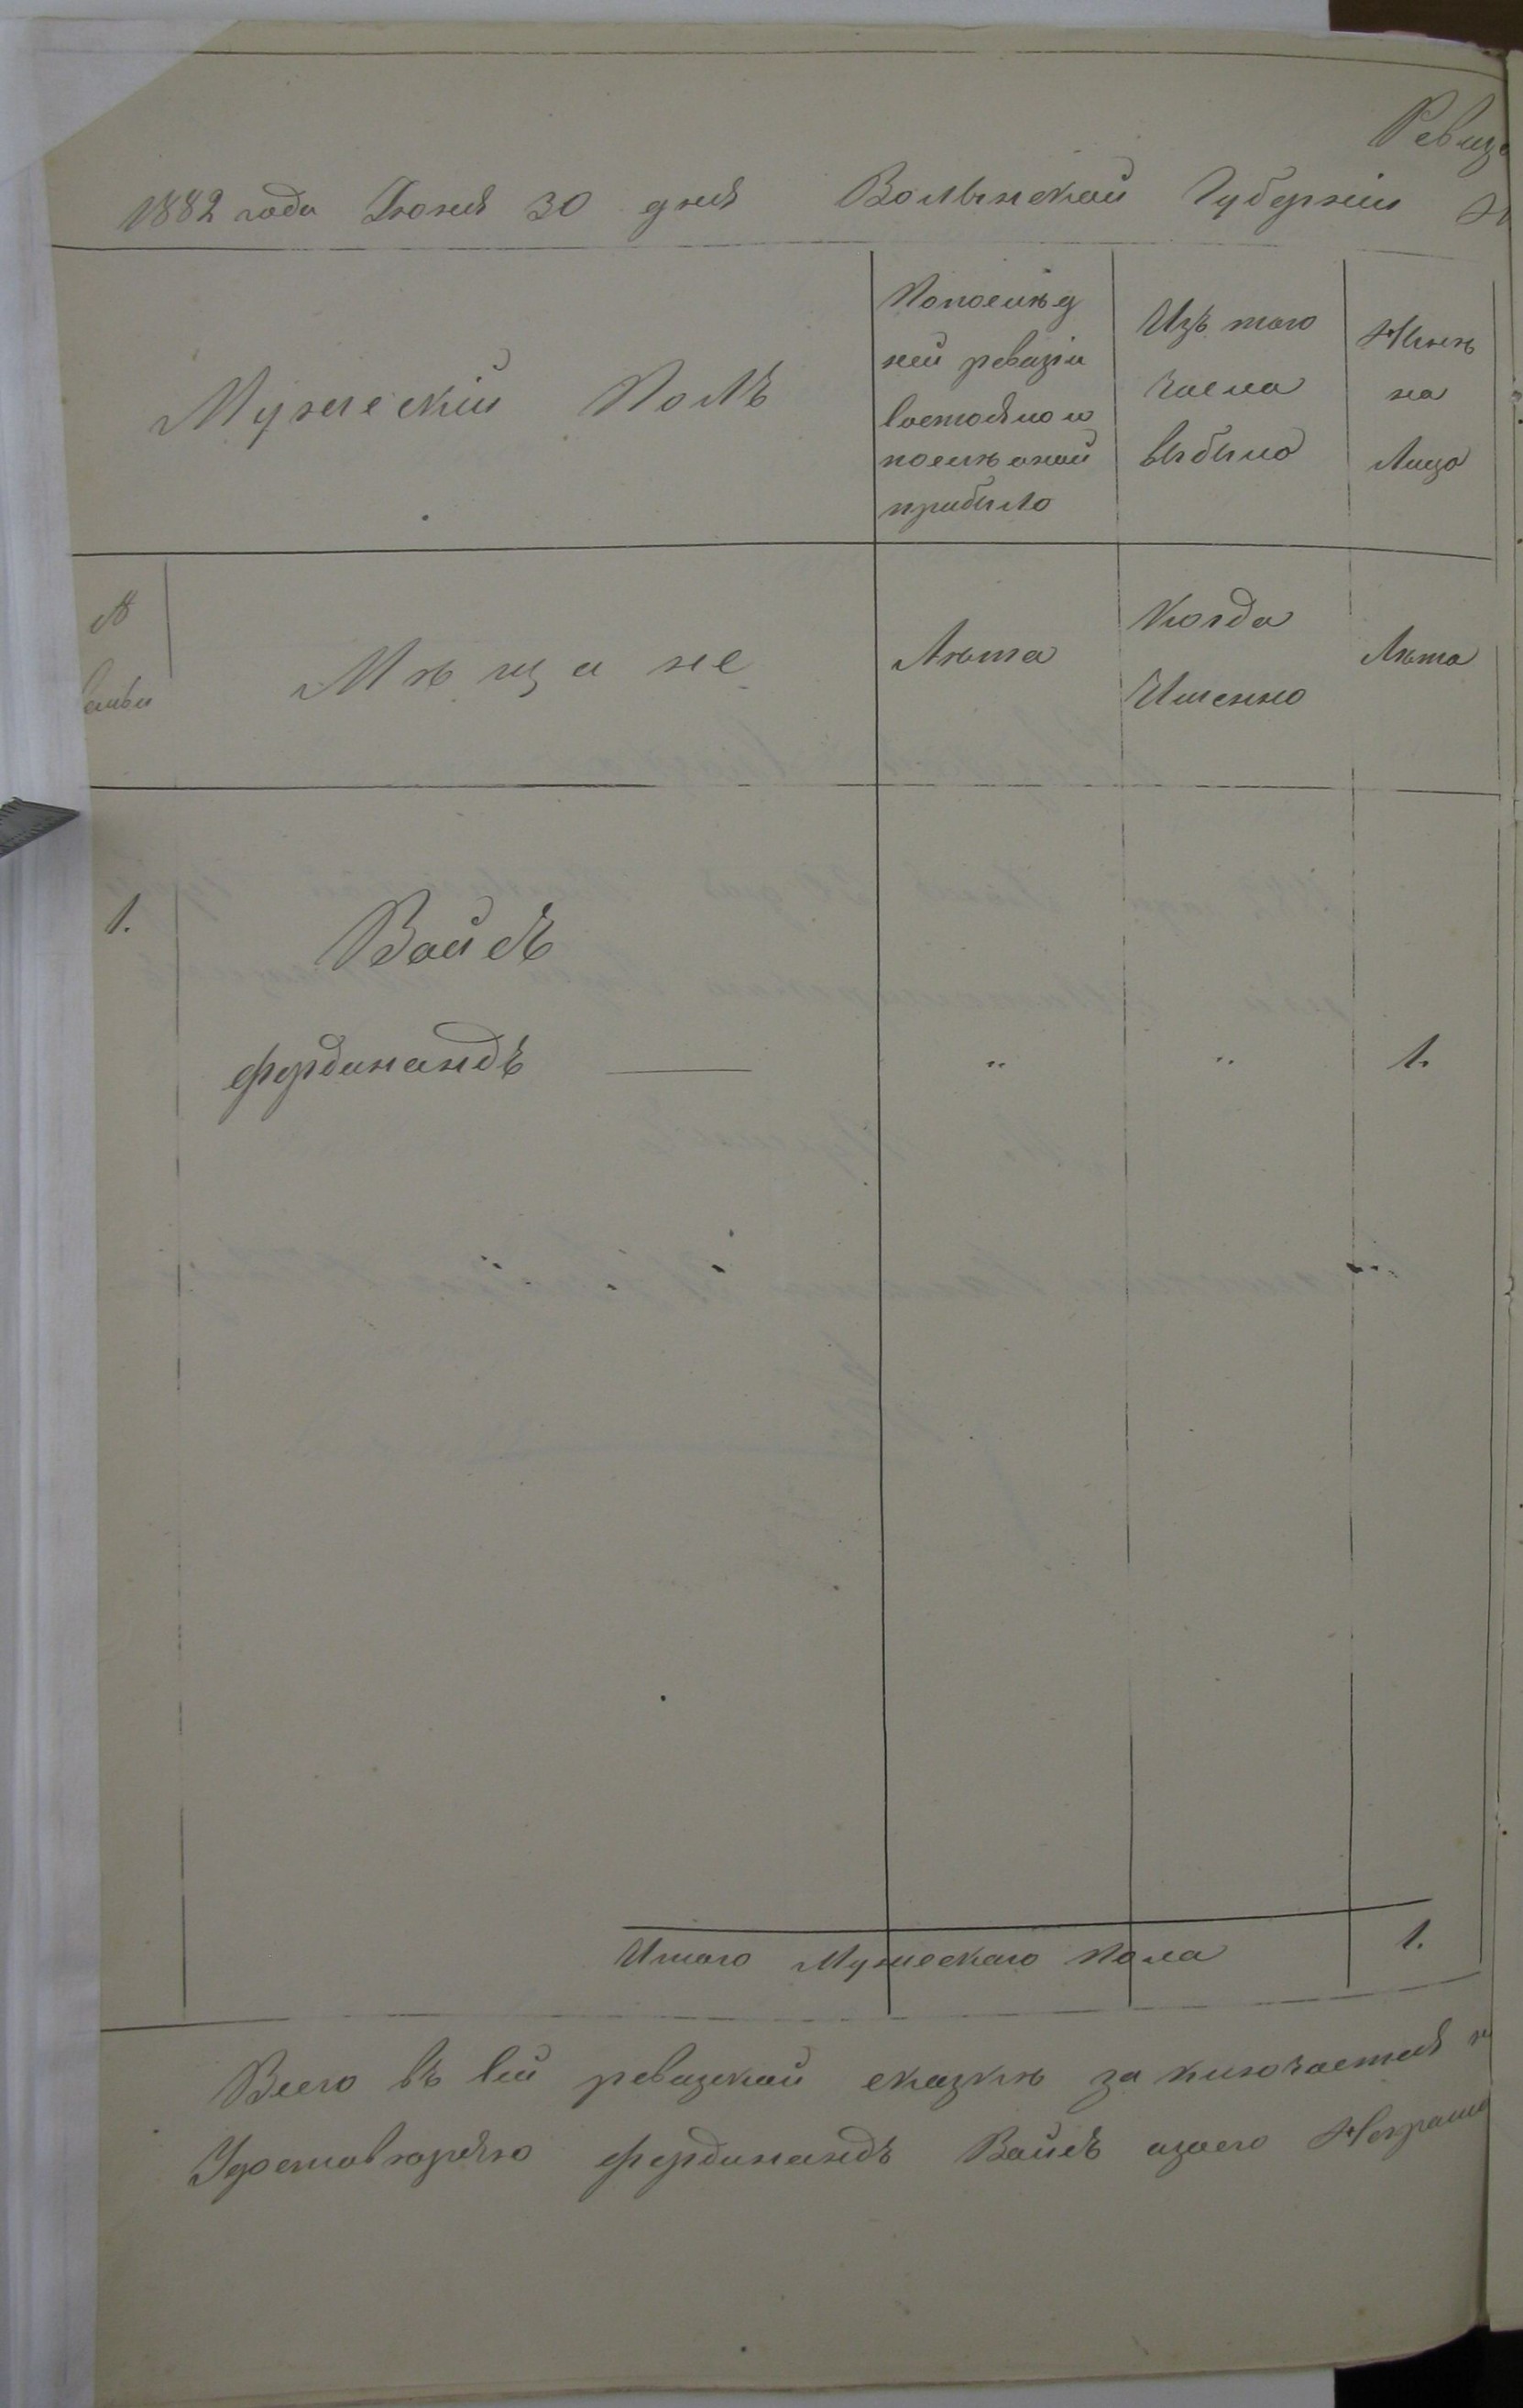 Ревизс
1882 года Іюня 30 дня Волынской Губерніи Н
Мужескій Полъ
Попослѣд
ней ревизіи
Состояло и
послѣ оной
прибыло
Изъ того
числа
выбыло
Нынѣ
на
Лицо
№
семьи
Мѣщане
Лѣта
Когда
Именно
Лѣта
1.
Вайсъ
Фердинандъ — „ „ 1.
Итого Мужескаго Пола 1.
Всего въ сей ревизской сказкѣ заключается
Удостовѣряю Фердинандъ Вайсъ азаего Неграмо